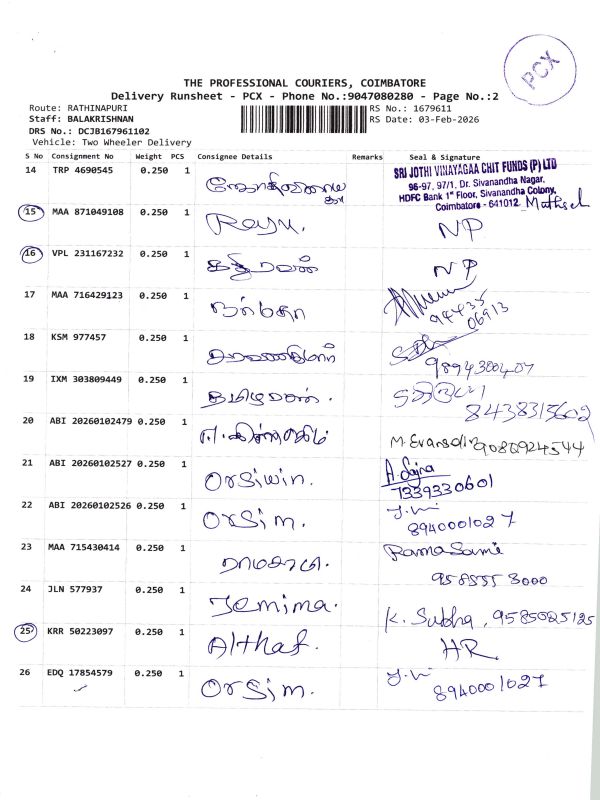 PCX
THE PROFESSIONAL COURIERS, COIMBATORE
Delivery Runsheet - PCX - Phone No.:9047080280 - Page No.:2
Route: RATHINAPURI
Staff: BALAKRISHNAN
DRS No.: DCJB167961102
Vehicle: Two Wheeler Delivery
RS No.: 1679611
RS Date: 03-Feb-2026
S No Consignment No Weight PCS Consignee Details Remarks Seal & Signature
14 TRP 4690545 0.250 1
SRI JOTHI VINAYAGAA CHIT FUNDS (P) LTD
96-97, 97/1, Dr. Sivanandha Nagar,
HDFC Bank 1st Floor, Sivanandha Colony,
Coimbatore - 641012
15 MAA 871049108 0.250 1 Raju. NP
16 VPL 231167232 0.250 1 கதிரவன் NP
17 MAA 716429123 0.250 1 94435
06913
18 KSM 977457 0.250 1 சரவணகுமார் 9894300407
19 IXM 303809449 0.250 1 தமிழரசன். 8438313602
20 ABI 20260102479 0.250 1 9080924544
21 ABI 20260102527 0.250 1 Orsiwin. A. Sajna
7339330601
22 ABI 20260102526 0.250 1 Orsim. 8940001027
23 MAA 715430414 0.250 1 ராமசாமி. Rama Sami
958555 3000
24 JLN 577937 0.250 1 Jemima. K. Subha, 9585025125
25 KRR 50223097 0.250 1 Althaf. HR
26 EDQ 17854579 0.250 1 Orsim. 8940001027